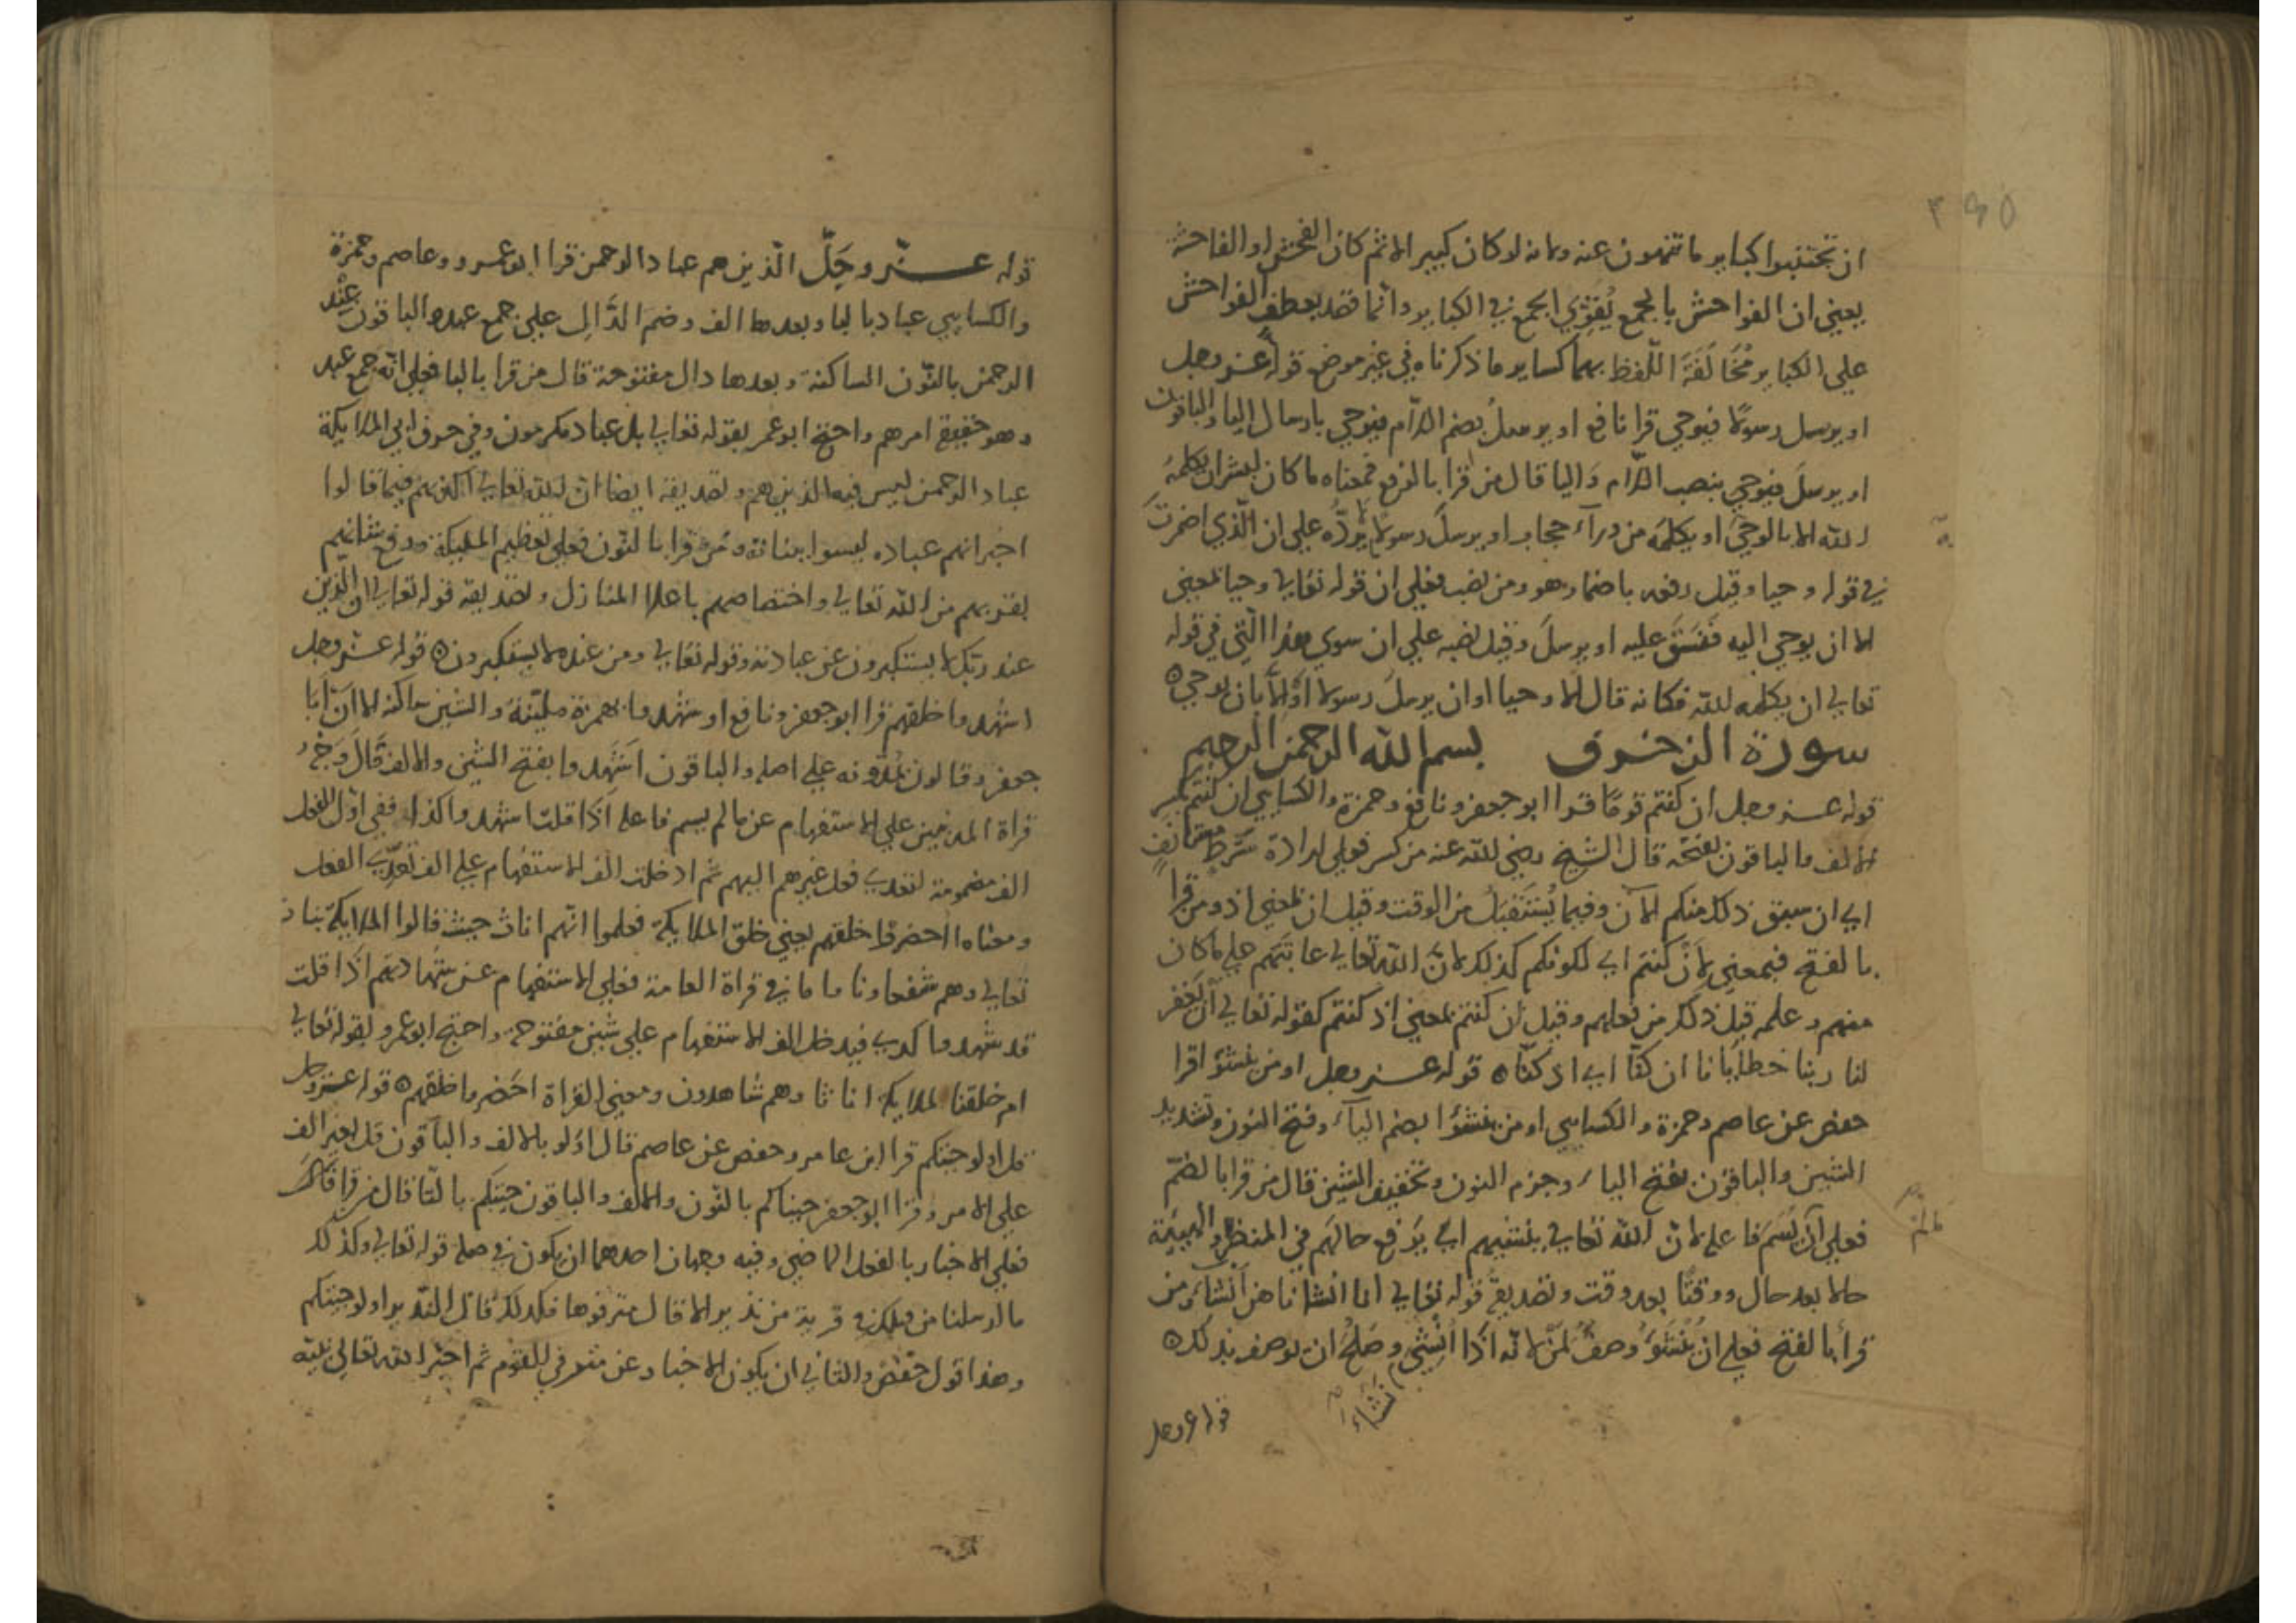 ٣٤٥
ان تجتنبوا كباير ما تنهون عنه ولانه لو كان كبير الاثم كان الفحش او الفاحشة
يعني ان الفواحش بالجمع يُقوّي الجمع في الكباير وانما فقد بعطف الفواحش
علي الكباير مُخَالَفَة اللّفظ بهما كساير ما ذكرناه في غير موضع قوله عز وجل
او يرسل رسولًا فيوحي قرا نافع او يرسلُ بضم اللّام فيوحي بارسال اليا والباقون
او يرسلَ فيوحيَ بنصب اللّام وَاليا قال من قرا بالرفع فمعناه ما كان لبشر ان يكلمهُ
الله الا بالوحيَ او يكلمَه من ورآء حجاب او يرسلَ رسولًا يُردُّه علي ان الّذي اضمرتَ
في قوله وحيا وقيل رفعه باضمار هو ومن نصب فعلي ان قوله تعالي وحيا بمعني
الا ان يوحي اليه فَنَسَقَ عليه او يرسلَ وقيل نصبه علي ان سوي هذا الّتي في قوله
تعالي ان يكلمه الله فكانه قال الا وحيا او ان يرسلَ رسولا اَو الاَّ بان يوحي ه
سورة الزخرف بسم الله الرحمن الرحيم
قوله عز وجل ان كنتم قومًا قرا ابو جعفر ونافع وحمزة والكسايي ان كنتم بكسر
الالف والباقون بفتحه قال الشيخ رضي الله عنه من كسر فعلي ارادة شَرطٍ مستانفٍ
اي ان سبق ذلك منكم الآن وفيما يُستَقبَلُ من الوقت وقيل ان بمعني اذ ومن قرا
بالفتح فبمعني لِاَنْ كنتم اي لكونكم كذلك لانّ الله تعالي عاتبَهم علي ما كان
منهم وعلمه قبل ذلك من فعلهم وقيل اَن كنتم بمعني اذ كنتم كقوله تعالي اَن يَغفر
لنا ربنا خطايانا ان كنّا اي اذ كنّا ه قوله عز وجل اومن ينشؤا قرا
حفص عن عاصم وحمزة والكسايي اومن ينشؤا بضم اليآء وفتح النون وتشديد
الشين والباقون بفتح الياء وجزم النون وتخفيف الشين قال من قرا بالضمّ
فعلي اَن لم يُسَمّ فاعله لانّ الله تعالي ينشيهم اي يَرفع حالهم في المنظر والهيئة
حالا بعد حال ووقتًا بعد وقت وتصديقُ قوله تعالي انا انشاناهن اِنشاء ومن
قرأ بالفتح فعلي ان يُنشَؤُ وصفٌ لمَن لانّه اذَا اُنشِئ وصَلحُ ان يوصف بذلك ه
نَشَاء
قوله عز وجل
قوله عزّ وجَلّ الّذين هم عباد الرحمن قرا ابو عمرو وعاصم وحمزة
والكسايي عباد بالبا وبعدها الف وضم الدَّال علي جمع عبد والباقون عِنْد
الرحمن بالنّون الساكنة وبعدها دال مفتوحة قال من قرا بالبا فعلي انّه جمع عبد
وهو حقيقة امرهم واحتج ابو عمرو بقوله تعالي بل عباد مكرمون وفي حرف ابي الملايكة
عباد الرحمن ليس فيه الذين هم وتصديقه ايضا ان الله تعالي اكذبهم فيما قالوا
اخبر انهم عباده ليسوا ببناته ومَن قرا بالنّون فعلي تعظيم المليكة ورفع شانهم
بقربهم من الله تعالي واختصاصهم باعلا المنازل وتصديقه قوله تعالي ان الّذين
عند ربّك لا يستكبرون عن عبادته وقوله تعالي ومن عنده لا يستكبرون ه قوله عز وجل
اشهدوا خلقهم قرا ابو جعفر ونافع اوشهدوا بهمزة مليّنة والشين ساكنة الا انّ اَبَا
جعفر وقالون يمدّونه علي اصله والباقون اَشَهدوا بفتح الشين والالف قَالَ وَجْهُ
قراة المدنيين علي الاستفهام عن ما لم يسم فاعله اذَا قلت اشهدوا كذا ففي اوّل الفعل
الف مضمومة لتعدي فعل غيرهم اليهم ثم ادخلت الف الاستفهام علي الف تعدِّي الفعل
ومعناه ااحضروا خلقهم يعني خلق الملايكة فعلموا انّهم اناث حيث قالوا الملايكة بنات
تعالي وهم شفعاونا واما في قراة العامة فعلي الاستفهام عن شهادتهم اذَا قلت
قد شهدوا كذا فيدخل الف الاستفهام علي شين مفتوحة واحتج ابو عمرو بقوله تعالي
ام خلقنا الملايكة اناثا وهم شاهدون ومعني القراة احَضروا خلقهم ه قوله عز وجل
قل اولو جئتكم قرا ابن عامر وحفص عن عاصم قال اوَلو بالالف والباقون قل بغير الف
علي الامر وقرا ابو جعفر جيناكم بالنّون والالف والباقون جيتكم بالتّا قال من قرا قَالَ
فعلي الاخبار بالفعل الماضي وفيه وجهان احدهما ان يكون في صلة قوله تعالي وكذلك
ما ارسلنا من قبلك في قرية من نذير الا قال مترفوها فكذلك قال النّذير اولو جيتكم
وهذا قول حفص والثاني ان يكون الاخبار عن للقوم ثم اخبر الله تعالي نبيّه